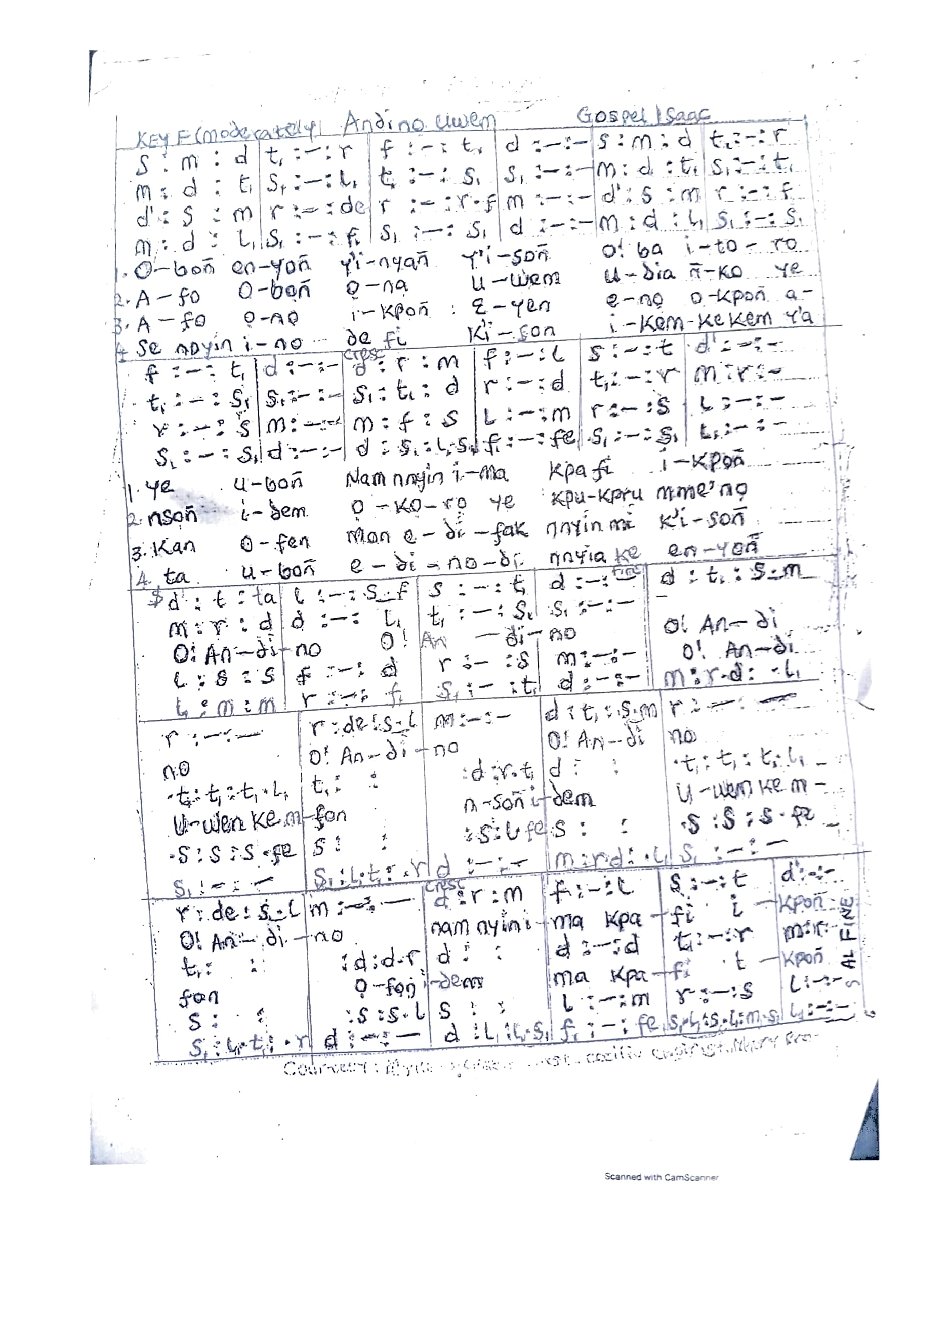 KEY F (moderately) Andino Uwem Gospel Isaac
s : m : d | t, : – : r | f : – : t, | d : – : – | s : m : d | t, : – : r
m : d : t, | s, : – : l, | t, : – : s, | s, : – : – | m : d : t, | s, : – : t,
d' : s : m | r : – : de | r : – : r.f | m : – : – | d' : s : m | r : – : f
m : d : l, | s, : – : f, | s, : – : s, | d : – : – | m : d : l, | s, : – : s,
1. O-boñ en-yoñ y'i-nyañ y'i-soñ O! ba i-to-ro
2. A-fo O-boñ ọ-nọ u-wem u-dia ñ-ko ye
3. A-fo ọ-nọ i-kpoñ : E-yen e-nọ o-kpoñ a-
4. Se nnyin i-no de fi k'i-son i-kem-ke kem y'a
f : – : t, | d : – : – | cresc d : r : m | f : – : l | s : – : t | d' : – : –
t, : – : s, | s, : – : – | s, : t, : d | r : – : d | t, : – : r | m : r : –
r : – : s | m : – : – | m : f : s | l : – : m | r : – : s | l : – : –
s, : – : s, | d : – : – | d : s, : l,.s, | f, : – : fe, | s, : – : s, | l, : – : –
1. ye u-boñ Nam nnyin i-ma kpa fi i-kpoñ
2. nsoñ i-dem ọ-kọ-rọ ye kpu-kpru mme'nọ
3. Kan o-fen Man e-di-fak nnyin mi k'i-soñ
4. ta u-boñ e-di-no-di nnyia ke en-yoñ
$ d' : t : ta | l : – : s.f | s : – : t, | d : – : – Fine | d : t, : s.m
m : r : d | d : – : l, | t, : – : s, | s, : – : –
O! An-di-no O! An-di-no O! An-di
O! An-di
l : s : s | f : – : d | r : – : s | m : – : – | m : r.d : .l,
t, : m : m | r : – : f, | s, : – : t, | d : – : –
r : – : – | r : de : s.l | m : – : – | d : t, : s.m | r : – : –
no O! An-di-no O! An-di no
.t, : t, : t,.l, | t, : : | : d : r.t, | d : : | .t, : t, : t,.l,
U-wen ke m-fon n-soñ i-dem U-wen ke m-
.s : s : s.fe | s : : | : s : l.fe | s : : | .s : s : s.fe
s, : – : – | s, : l,.t, : .r | d : – : – | m : r.d : .l, | s, : – : –
r : de : s.l | m : – : – | cresc d : r : m | f : – : l | s : – : t | d' : – : –
O! An-di-no nam nyin i-ma kpa-fi i-kpoñ
t, : : | : d : d.r | d : : | d : – : d | t, : – : r | m : r : –
fon o-foñ i-dem ma kpa-fi t-kpoñ
s : : | : s : s.l | s : : | l : – : m | r : – : s | l : – : –
s, : l,.t, : .r | d : – : – | d : l, : l,.s, | f, : – : fe, | s,.l, : s.l, : m.s, | l, : – : –
S AL FINE
Scanned with CamScanner